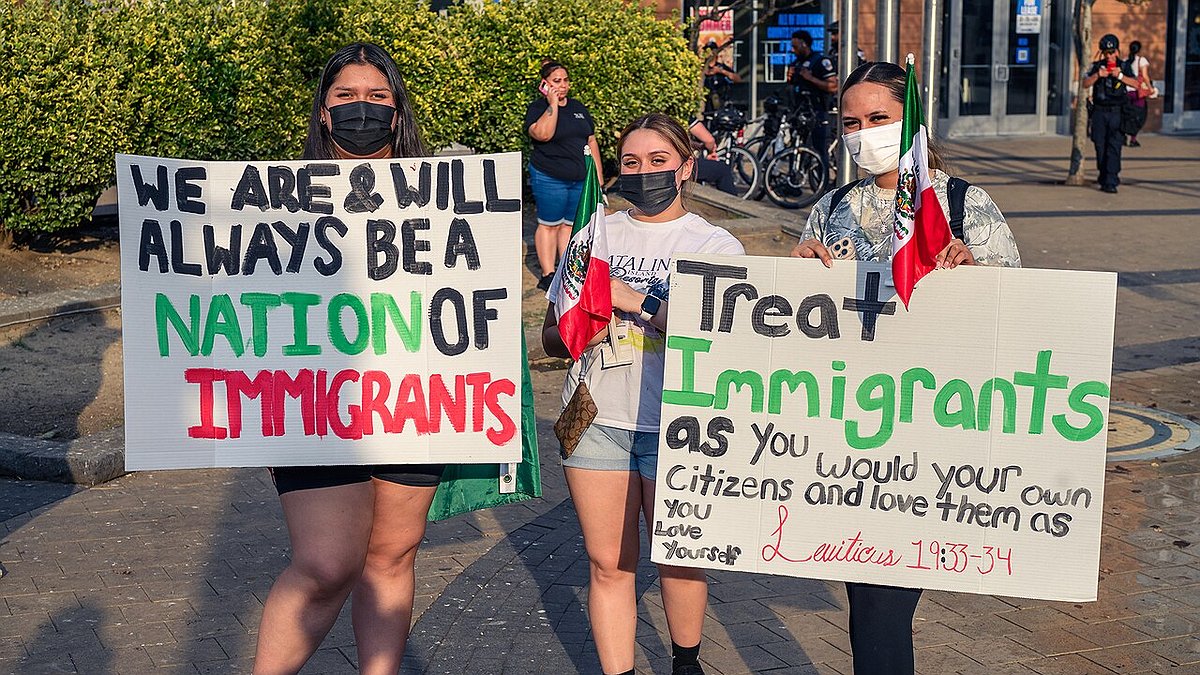 WE ARE & WILL
ALWAYS BE A
NATION OF
IMMIGRANTS
Treat
Immigrants
as you would your own
Citizens and love them as
you
Love
yourself
Leviticus 19:33-34